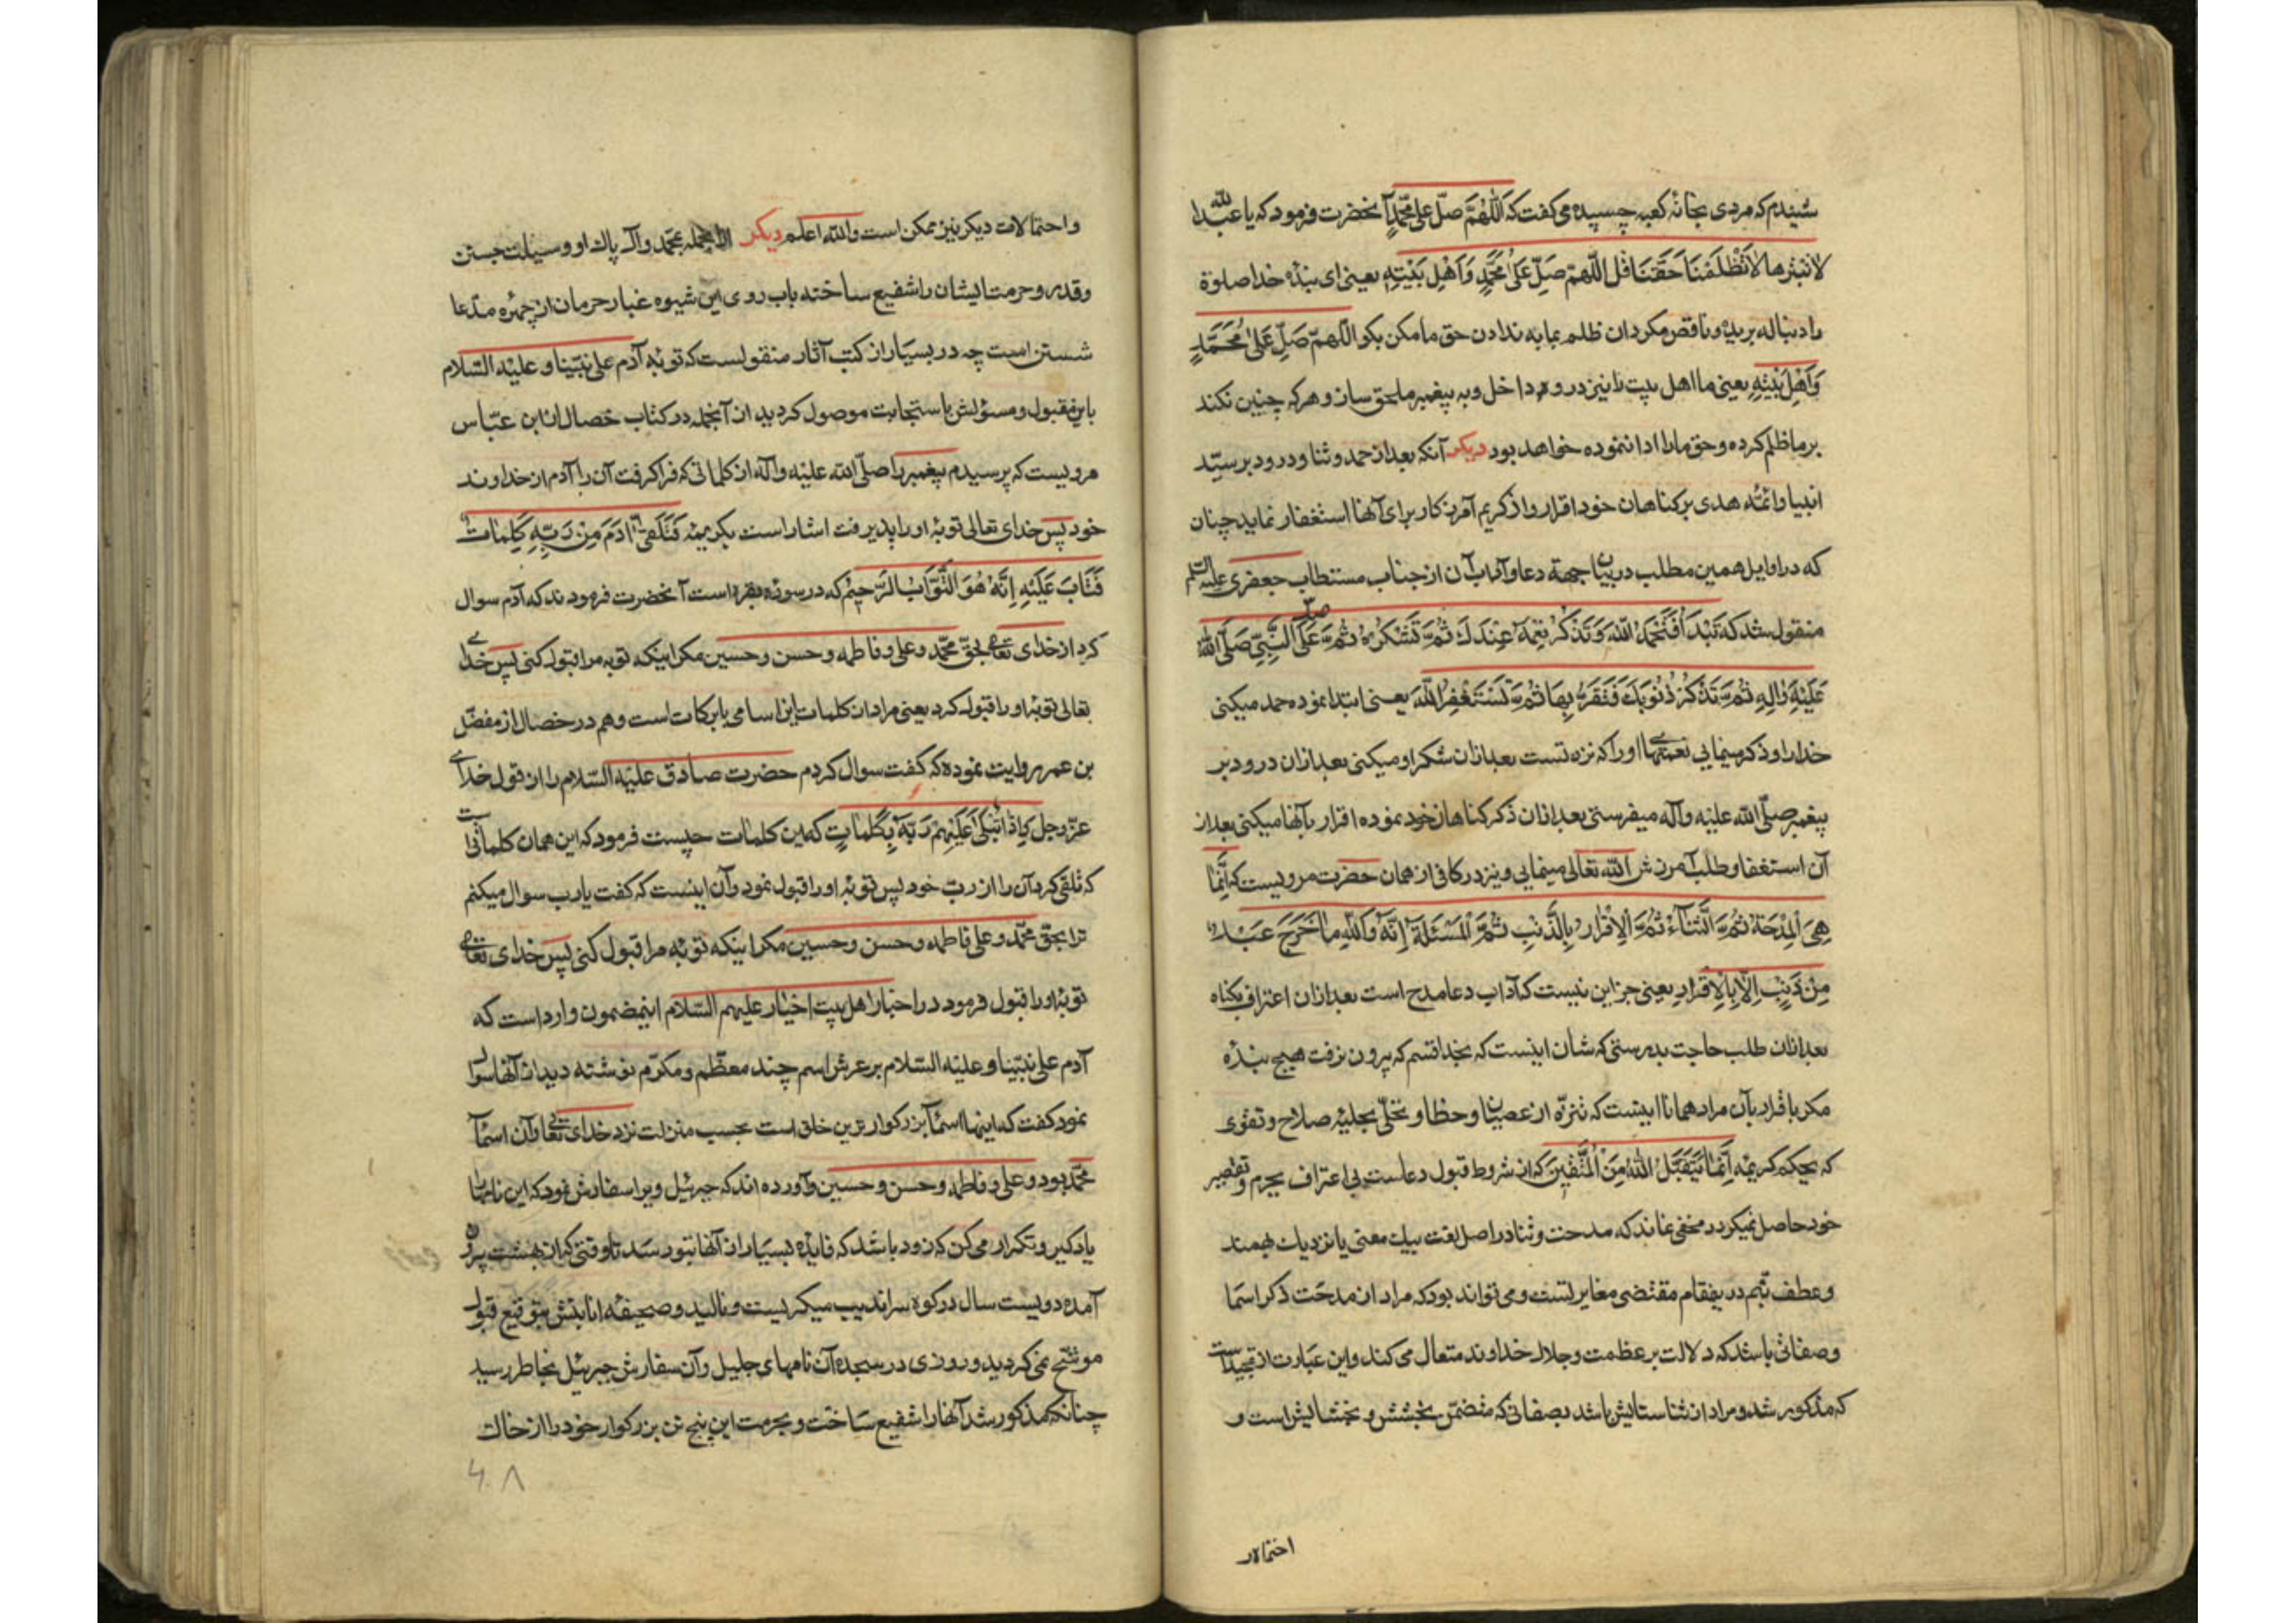 شنیدم که مردی بخانهٔ کعبه چسپیده می کفت که اَللّٰهُمَّ صَلِّ علی مُحَمَّدٍ آنحضرت فرمود که یا عبد الله
لا تبترها لاَ تَظْلِمْنَا حَقَّنَا قُل اَللّٰهُمَّ صَلِّ عَلیٰ مُحَمَّدٍ وَاَهْلِ بَیْتِهِ یعنی ای بندهٔ خدا صلوة
را دنباله بریده و ناقص مکردان ظلم بما به ندادن حق ما مکن بکو اللّهمّ صَلِّ عَلیٰ مُحَمَّدٍ
وَاَهْلِ بَیْتِهِ یعنی ما اهل بیت را نیز در و داخل و به پیغمبر ملحق ساز و هر که چنین نکند
بر ما ظلم کرده و حق ما را ادا ننموده خواهد بود دیکر آنکه بعد از حمد و ثنا و درود بر سیّد
انبیا و ائمّه هدی بر کناهان خود اقرار و از کریم آمرزکار برای آنها استغفار نماید چنان
که در اوایل همین مطلب در بیان جهة دعا و آداب آن از جناب مستطاب جعفری علیه السلم
منقول شد که تَبْدَأُ فَتَحْمَدُ اللّٰهَ وَتَذْکُرُ نِعَمَهُ عِنْدَكَ ثُمَّ تَشْکُرُهُ ثُمَّ تُصَلّی عَلَی النَّبِیِّ صَلَّی اللّٰهُ
عَلَیْهِ وَاٰلِهِ ثُمَّ تَذْکُرُ ذُنُوبَكَ فَتُقِرُّ بِهَا ثُمَّ تَسْتَغْفِرُ اللّٰهَ یعنی ابتدا نموده حمد میکنی
خدا را و ذکر مینمایی نعمتهای او را که نزد تست بعد ازان شکر او میکنی بعد ازان درود بر
پیغمبر صلّی الله علیه وآله میفرستی بعد ازان ذکر کناهان خود نموده اقرار بآنها میکنی بعد از
آن استغفار و طلب آمرزش از الله تعالی مینمایی و نیز در کافی از همان حضرت مرویست که اِنَّمَا
هِیَ الْمِدْحَةُ ثُمَّ الثَّنَآءُ ثُمَّ الْاِقْرَارُ بِالذَّنْبِ ثُمَّ الْمَسْئَلَةُ اِنَّهُ وَاللّٰهِ مَا خَرَجَ عَبْدٌ
مِنْ ذَنْبٍ اِلَّا بِالْاِقْرَارِ یعنی جز این نیست که آداب دعا مدح است بعد ازان اعتراف بکناه
بعد ازان طلب حاجت بدرستی که شان اینست که بخدا قسم که بیرون نرفت هیچ بندهٔ
مکر باقرار بآن مراد همانا اینست که تنزّه از عصیان و خطا و تحلّی بحلیهٔ صلاح و تقوی
که بحکم کریمهٔ اِنَّمَا یَتَقَبَّلُ اللّٰهُ مِنَ الْمُتَّقِینَ که از شروط قبول دعاست بی اعتراف بجرم و تقصیر
خود حاصل نمیکردد مخفی نماند که مدحت و ثنا در اصل لغت بیك معنی یا نزدیك بهمند
وعطف بثم درینمقام مقتضی مغایرتست و می تواند بود که مراد از مدحت ذکر اسما
وصفاتی باشد که دلالت بر عظمت و جلال خداوند متعال می کند و این عبارت از تمجیداست
که مذکور شد و مراد از ثنا ستایش باشد بصفاتی که متضمّن بخشش و بخشایش است و
احتمالات
واحتمالات دیکر نیز ممکن است والله اعلم دیکر محمّد وآل پاك او وسیلت جستن
وقدر و حرمت ایشان را شفیع ساخته باب روی این شیوه غبار حرمان از چهرهٔ مدّعا
شستن است چه در بسیار از کتب آثار منقولست که توبهٔ آدم علی نبیّنا و علیه السّلام
باین مقبول ومسؤلش باستجابت موصول کردید از آنجمله در کتاب خصال از ابن عبّاس
مرویست که پرسیدم پیغمبر را صلّی الله علیه وآله از کلماتی که فرا کرفت آن را آدم از خداوند
خود پس خدای تعالی توبهٔ او را پذیرفت اشار است بکریمهٔ فَتَلَقّیٰ اٰدَمُ مِنْ رَبِّهِ کَلِمَاتٍ
فَتَابَ عَلَیْهِ اِنَّهُ هُوَ التَّوَّابُ الرَّحِیْمُ که در سورهٔ بقره است آنحضرت فرمودند که آدم سوال
کرد از خدای تعالی بحقّ محمّد وعلی و فاطمه وحسن وحسین مکر اینکه توبه مرا قبول کنی پس خدای
تعالی توبهٔ او را قبول کرد یعنی مراد از کلمات این اسامی با برکات است وهم در خصال از مفضّل
بن عمر روایت نموده که کفت سوال کردم حضرت صادق علیه السّلام را از قول خدای
عزّ وجل وَاِذِ ابْتَلیٰ اِبْرٰهِیمَ رَبُّهُ بِکَلِمَاتٍ که این کلمات چیست فرمود که این همان کلماتیست
که تلقی کرد آن را از ربّ خود پس توبهٔ او را قبول نمود وآن اینست که کفت یا رب سوال میکنم
ترا بحق محمّد وعلی و فاطمه وحسن وحسین مکر اینکه توبهٔ مرا قبول کنی پس خدای تعالی
توبهٔ او را قبول فرمود در اخبار اهل بیت اخیار علیهم السّلام اینمضمون وارد است که
آدم علی نبیّنا و علیه السّلام بر عرش اسم چند معظّم ومکرّم نوشته دید از آنها سوال
نمود کفت که اینها اسمآ بزرکوارترین خلق است بحسب منزلت نزد خدای تعالی وآن اسمآ
محمّد بود و علی و فاطمه وحسن وحسین وآورده اند که جبرئیل ویرا سفارش نمود که این نامها را
یاد کیر و تکرار می کن که زود باشد که فایدهٔ بسیار از آنها بتو رسد تا وقتی که از بهشت بیرون
آمده دویست سال در کوه سراندیب میکریست و نالید و صحیفهٔ انابتش بتوقیع قبول
موشّح نمی کردید و روزی در سجده آن نامهای جلیل وآن سفارش جبرئیل بخاطر رسید
چنانکه مذکور شد آنها را شفیع ساخت و بحرمت این پنج تن بزرکوار خود را از خاك
۴۰۸